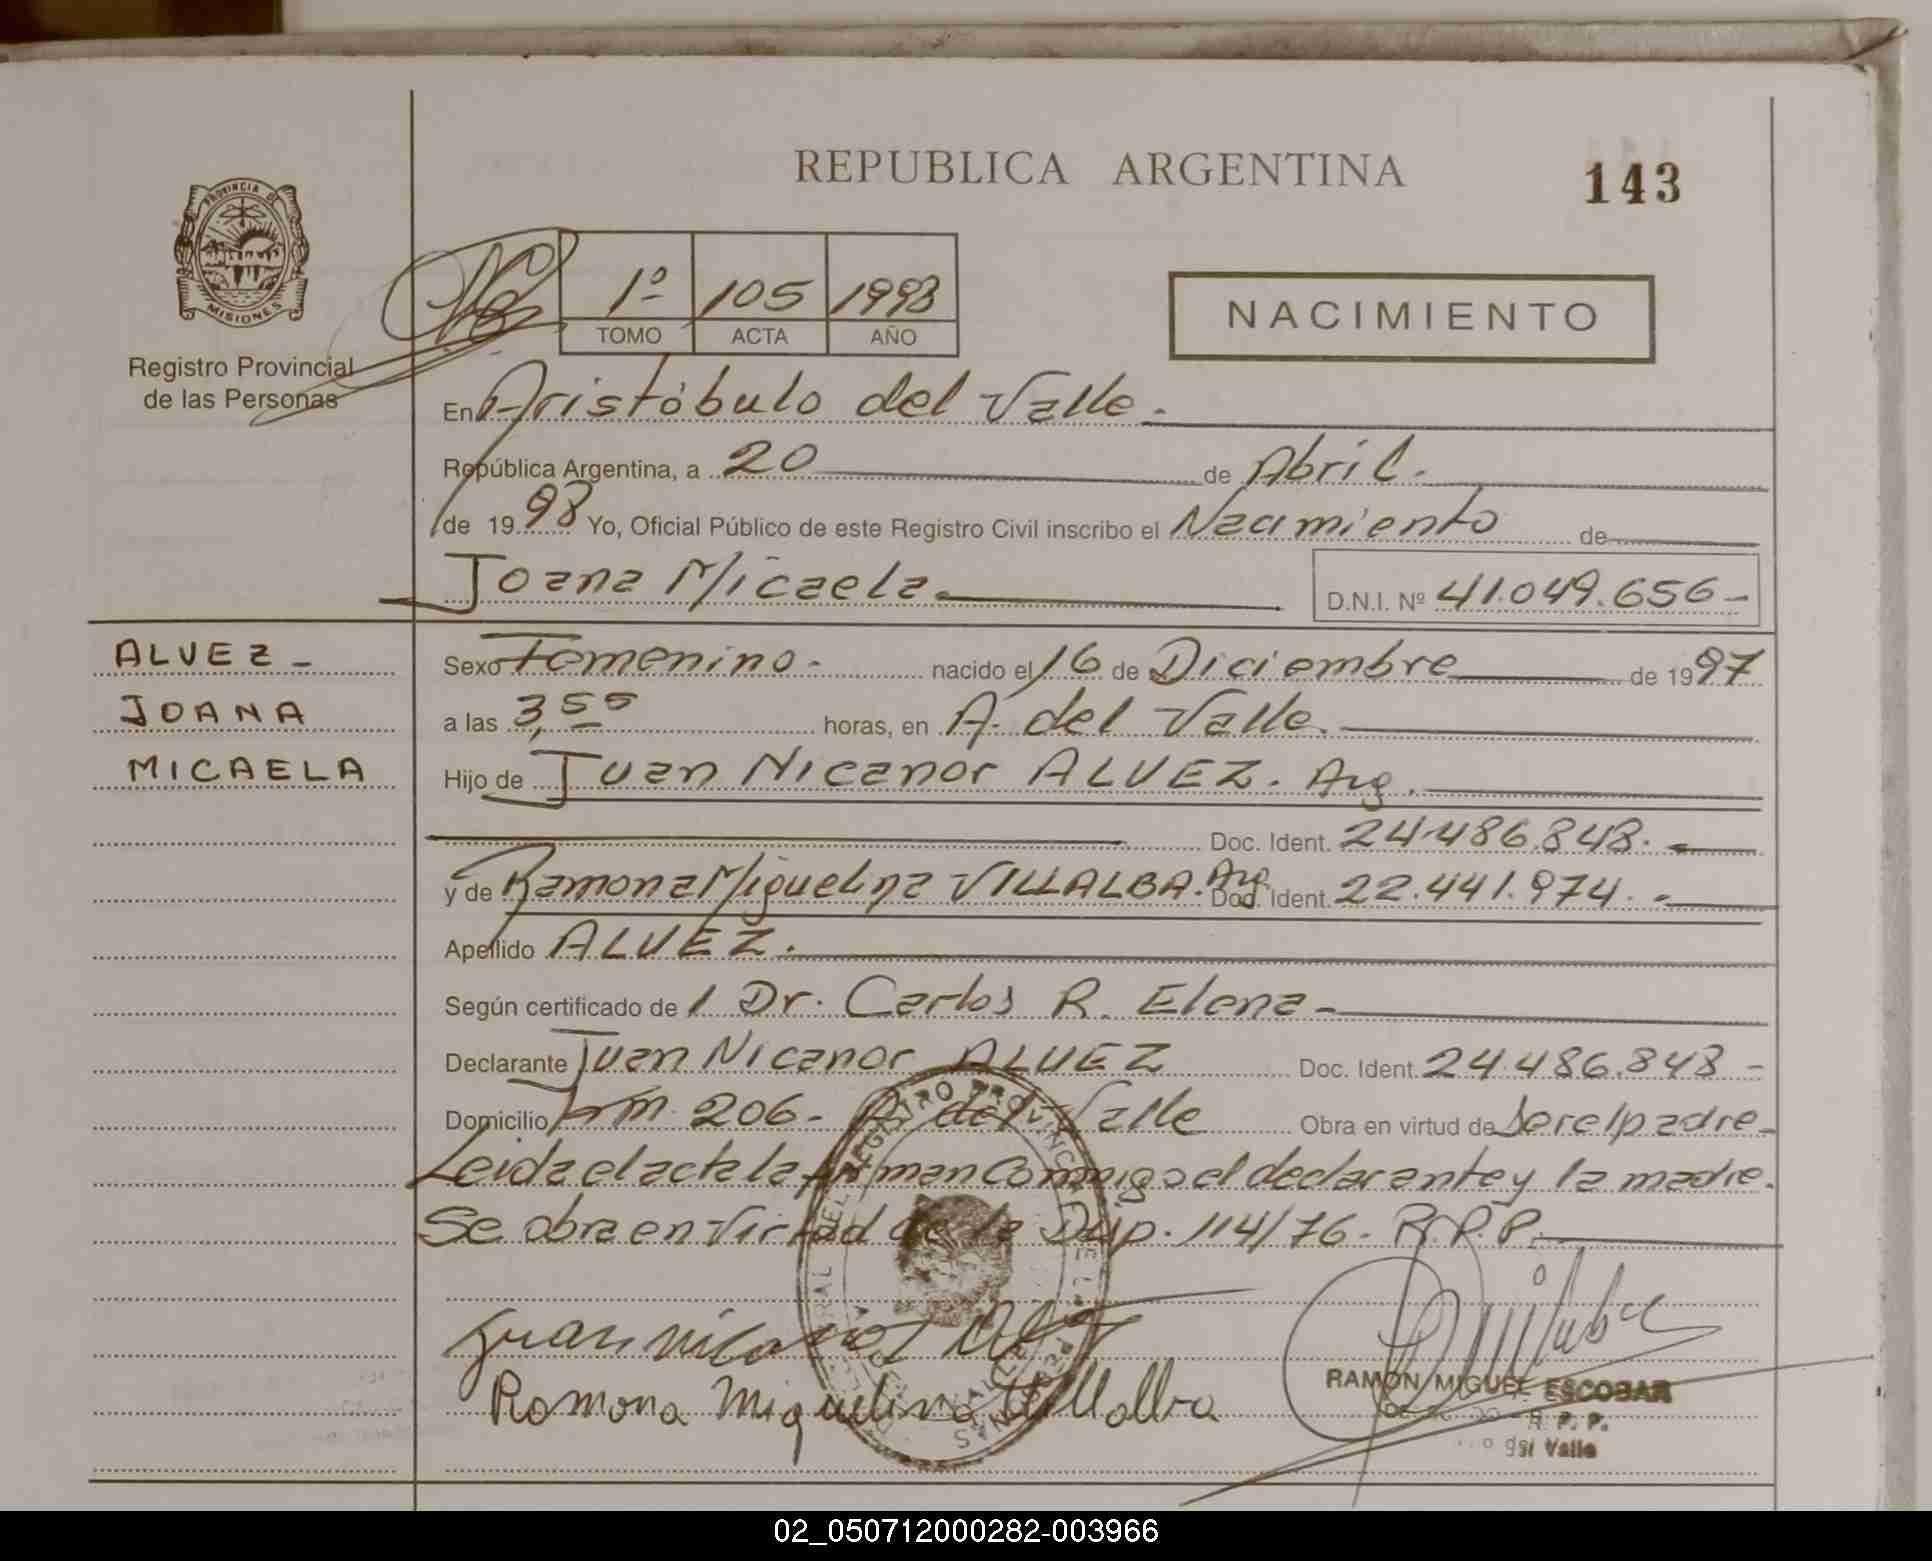 REPUBLICA ARGENTINA
143
PROVINCIA DE
MISIONES
Registro Provincial
de las Personas
1º 105 1998
TOMO ACTA AÑO
NACIMIENTO
En Aristóbulo del Valle.
República Argentina, a 20 de Abril.
de 1998 Yo, Oficial Público de este Registro Civil inscribo el Nacimiento de
Joana Micaela. D.N.I. Nº 41.049.656-
ALVEZ -
JOANA
MICAELA
Sexo Femenino. nacido el 16 de Diciembre de 1997
a las 3,55 horas, en A. del Valle.
Hijo de Juan Nicanor ALVEZ. Arg.
Doc. Ident. 24.486.848.-
y de Ramona Miguelina VILLALBA. Arg Doc. Ident. 22.441.974.-
Apellido ALVEZ.
Según certificado de / Dr. Carlos R. Elena-
Declarante Juan Nicanor ALVEZ Doc. Ident. 24.486.848-
Domicilio Km. 206- A. del Valle Obra en virtud de ser el padre-
Leida el acta la firman conmigo el declarante y la madre.
Se obra en virtud de la Disp. 114/76. R.P.P.
Juan Nicanor Alvez
Ramona Miguelina Villalba
RAMON MIGUEL ESCOBAR
R. P. P.
del Valle
02_050712000282-003966